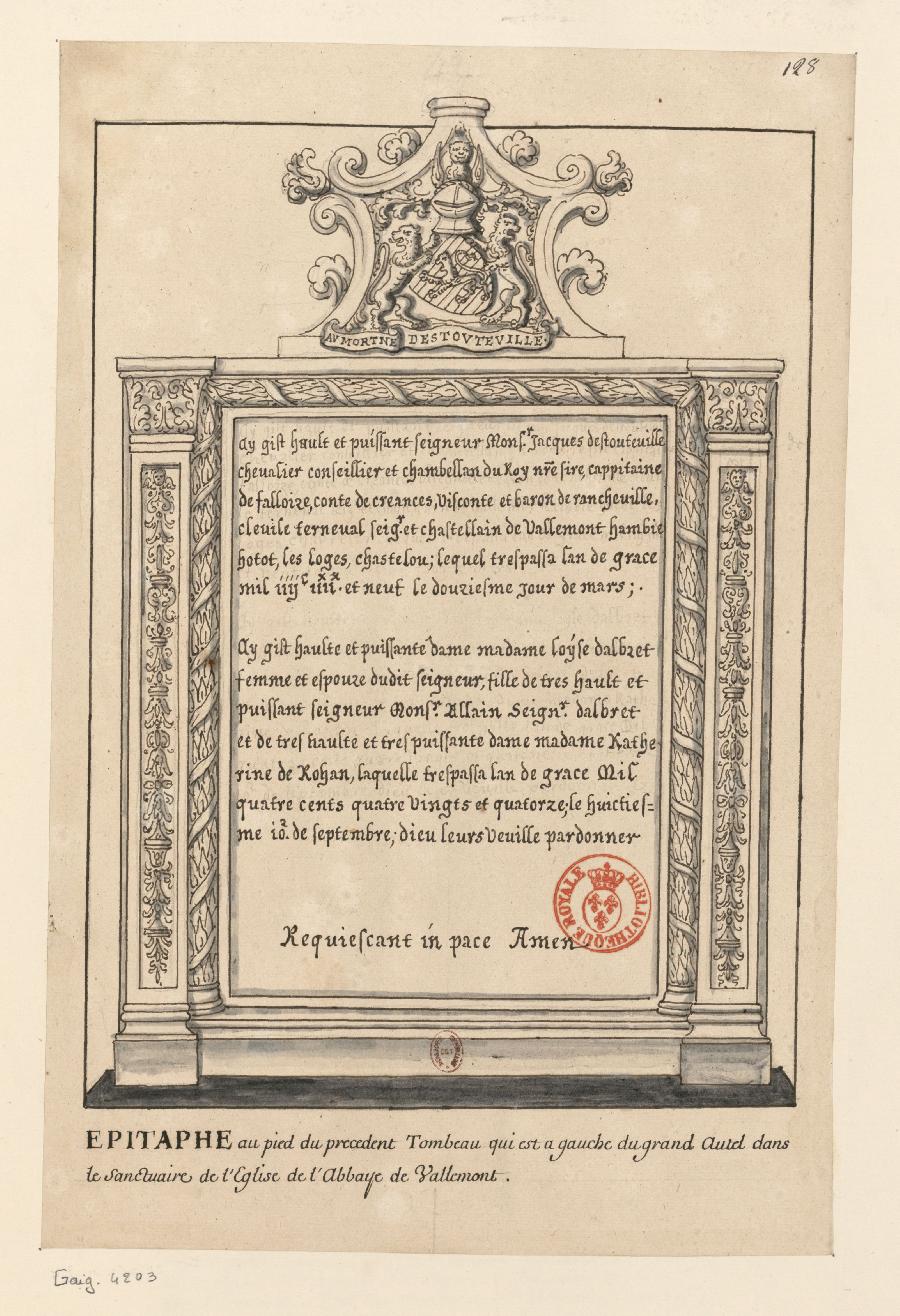 128
AV MORTNE DESTOVTEVILLE
Cy gist hault et puissant seigneur Monsr. Jacques destouteville
chevalier conseillier et chambellan du Roy nr̄e sire, cappitaine
de falloize, conte de creances, Visconte et baron de rancheville,
cleuile berneval seigr. et chastellain de Vallemont hambie
hotot, les loges, chastelou; lequel trespassa lan de grace
mil iiijc iiijxx. et neuf le douziesme Jour de mars;.
Cy gist haulte et puissante dame madame loÿse dalbret
femme et espouze dudit seigneur, fille de tres hault et
puissant seigneur Monsr. Allain Seignr. dalbret
et de tres haulte et tres puissante dame madame Kathe-
rine de Rohan, laquelle trespassa lan de grace Mil
quatre cents quatre Vingts et quatorze, le huicties=
me io. de septembre; dieu leurs Veuille pardonner
Requiescant in pace Amen
BIBLIOTHEQUE ROYALE
EPITAPHE au pied du precedent Tombeau qui est a gauche du grand Autel dans
le Sanctuaire de l'Eglise de l'Abbaye de Vallemont.
Gaig. 4203